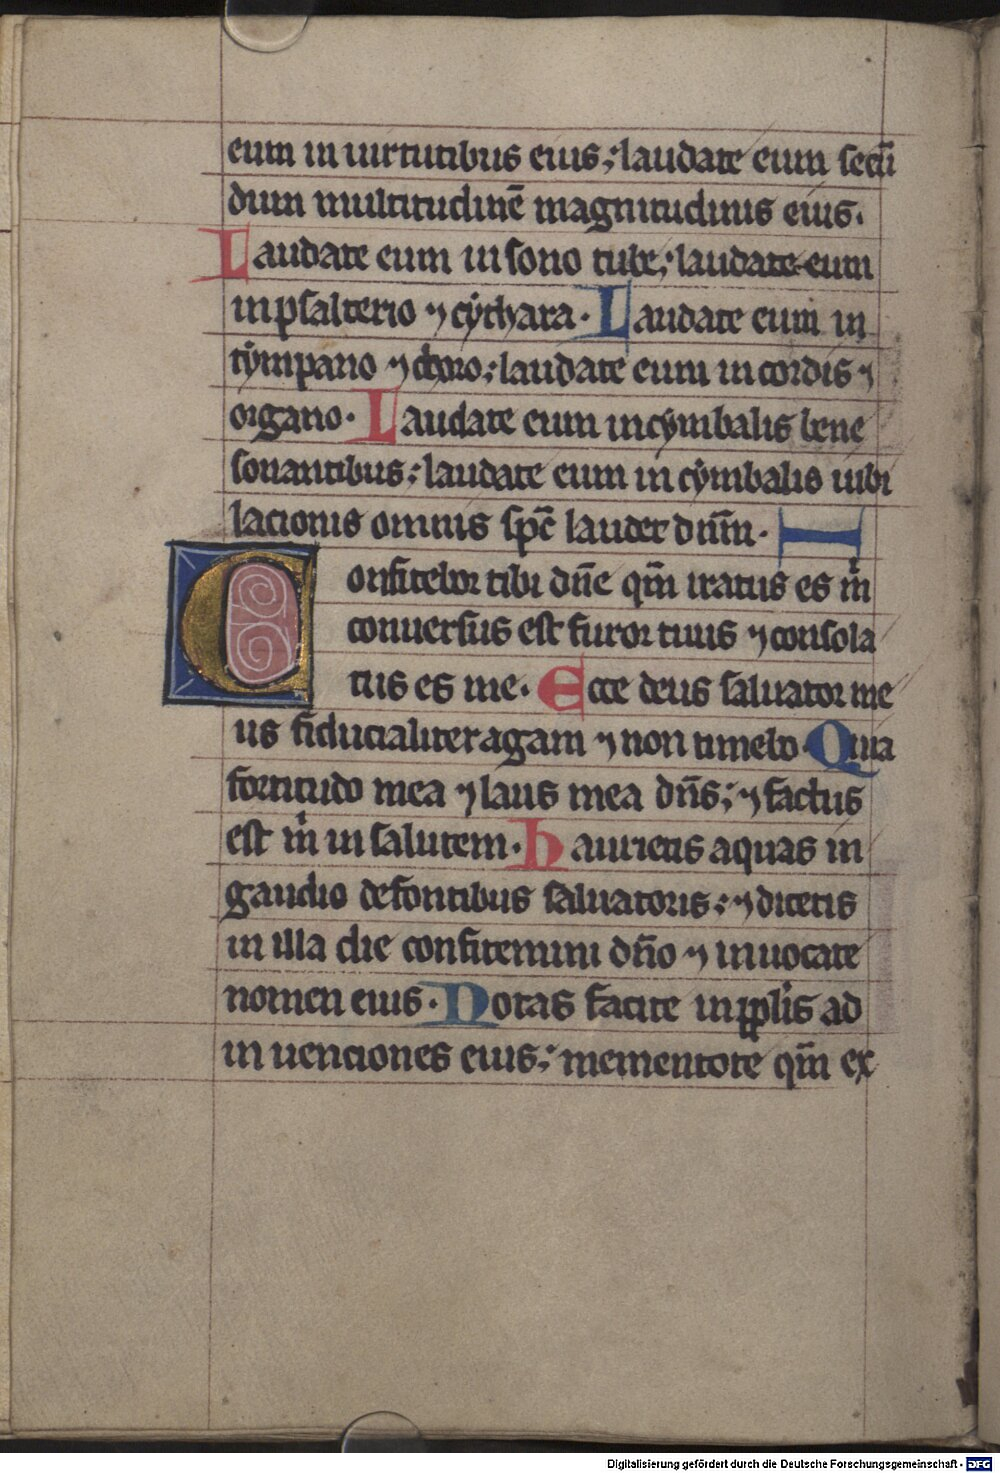 eum in uirtutibus eius; laudate eum secū
dum multitudinē magnitudinis eius.
Laudate eum in sono tube; laudate eum
in psalterio ⁊ cẏthara. Laudate eum in
tẏmpano ⁊ choro; laudate eum in cordis ⁊
organo. Laudate eum in cẏmbalis bene
sonantibus; laudate eum in cẏmbalis iubi
lacionis omnis sp̄c laudet dnm̄.
Confitebor tibi dn̄e qm̄ iratus es m̄
conuersus est furor tuus ⁊ consola
tus es me. Ecce deus saluator me
us fiducialiter agam ⁊ non timebo. Quia
fortitudo mea ⁊ laus mea dn̄s; ⁊ factus
est m̄ in salutem. Haurietis aquas in
gaudio de fontibus saluatoris; ⁊ dicetis
in illa die confitemini dn̄o ⁊ inuocate
nomen eius. Notas facite in pplis ad
in uenciones eius; mementote qm̄ ex
Digitalisierung gefördert durch die Deutsche Forschungsgemeinschaft - DFG